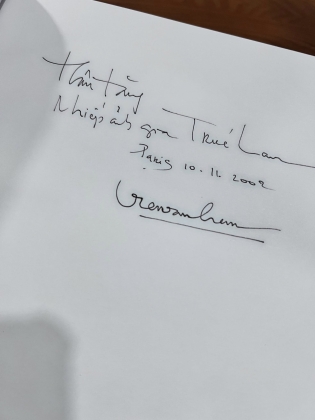 Thân tặng
Nhiếp ảnh gia Trúc Lan
Paris 10.12.2002